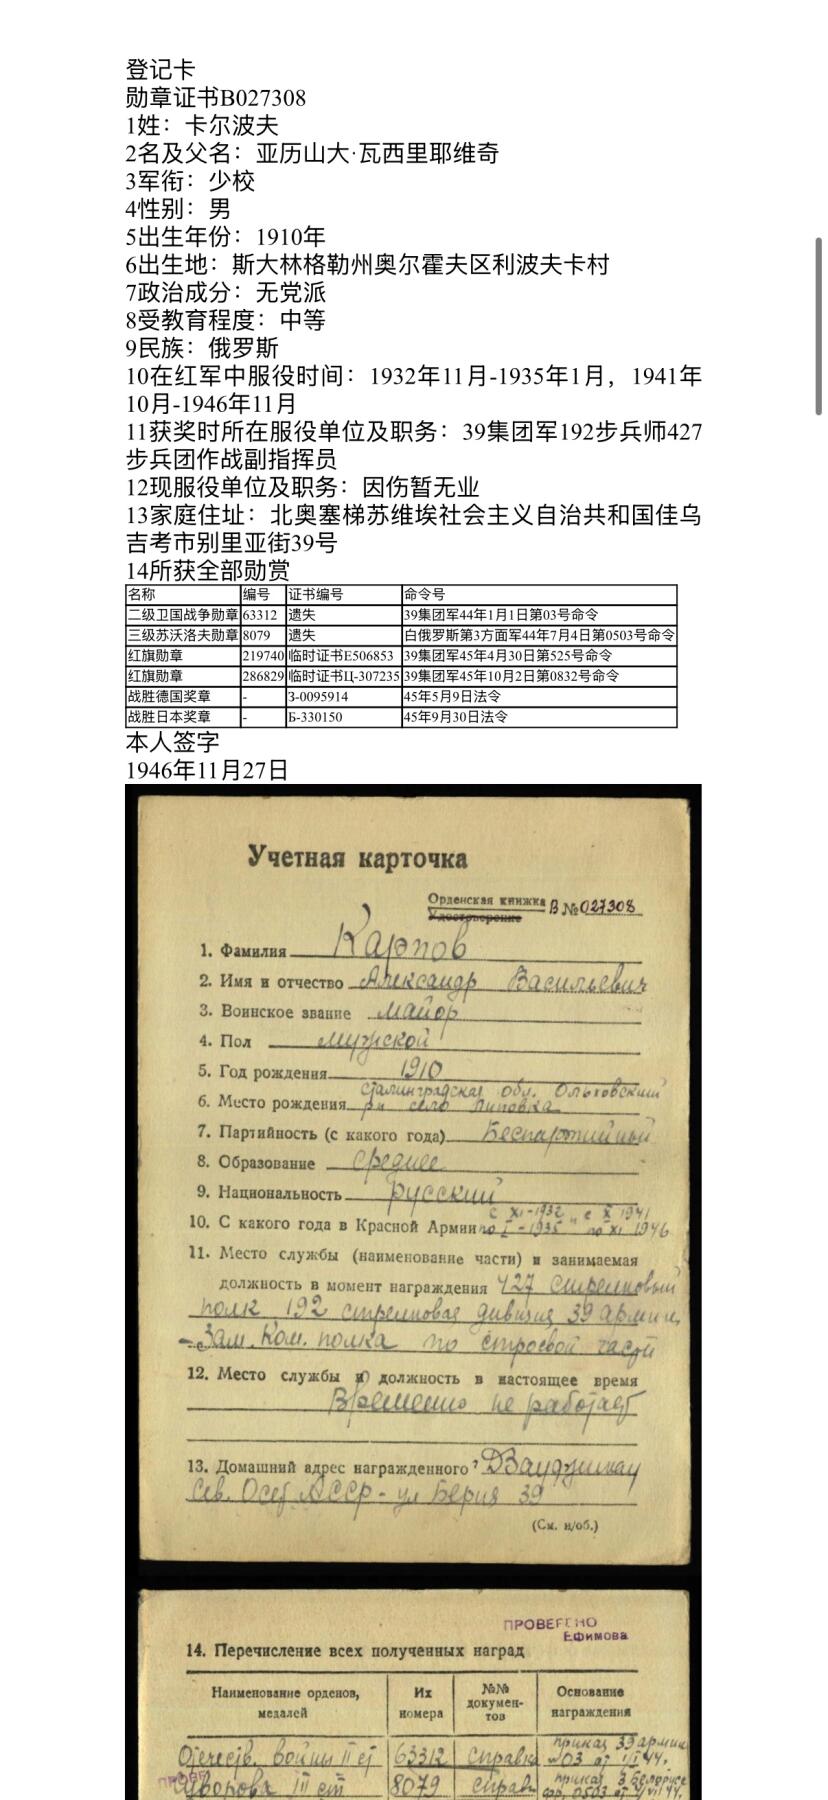 登记卡
勋章证书B027308
1姓：卡尔波夫
2名及父名：亚历山大·瓦西里耶维奇
3军衔：少校
4性别：男
5出生年份：1910年
6出生地：斯大林格勒州奥尔霍夫区利波夫卡村
7政治成分：无党派
8受教育程度：中等
9民族：俄罗斯
10在红军中服役时间：1932年11月-1935年1月，1941年
10月-1946年11月
11获奖时所在服役单位及职务：39集团军192步兵师427
步兵团作战副指挥员
12现服役单位及职务：因伤暂无业
13家庭住址：北奥塞梯苏维埃社会主义自治共和国佳乌
吉考市别里亚街39号
14所获全部勋赏
名称 编号 证书编号 命令号
二级卫国战争勋章 63312 遗失 39集团军44年1月1日第03号命令
三级苏沃洛夫勋章 8079 遗失 白俄罗斯第3方面军44年7月4日第0503号命令
红旗勋章 219740 临时证书E506853 39集团军45年4月30日第525号命令
红旗勋章 286829 临时证书Ц-307235 39集团军45年10月2日第0832号命令
战胜德国奖章 - З-0095914 45年5月9日法令
战胜日本奖章 - Б-330150 45年9月30日法令
本人签字
1946年11月27日
Учетная карточка
Орденская книжка В № 027308
Удостоверение
1. Фамилия Карпов
2. Имя и отчество Александр Васильевич
3. Воинское звание майор
4. Пол мужской
5. Год рождения 1910
сталинградская обл. Ольховский
6. Место рождения р-н село Липовка
7. Партийность (с какого года) Беспартийный
8. Образование среднее
9. Национальность русский
с XI-1932 с X 1941
10. С какого года в Красной Армии по I-1935 по XI 1946
11. Место службы (наименование части) и занимаемая
должность в момент награждения 427 стрелковый
полк 192 стрелковая дивизия 39 армии,
-Зам. Ком. полка по строевой части
12. Место службы и должность в настоящее время
Временно не работает
13. Домашний адрес награжденного? Дзауджикау
Сев. Осет АССР - ул Берия 39
(См. н/об.)
ПРОВЕРЕНО
Ефимова
14. Перечисление всех полученных наград
Наименование орденов, медалей Их номера №№ документов Основание награждения
Отечеств. войны II ст 63312 справка приказ 39 армии №03 от 1/I 44.
Суворова III ст 8079 справ приказ 3 Белорусс фр. 0503 от 4/VII 44.